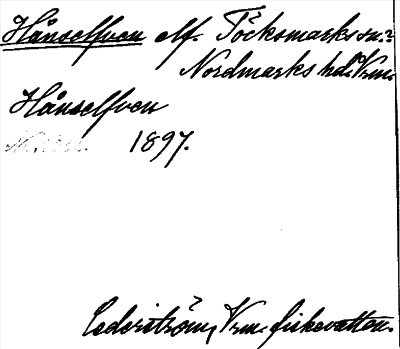 Hånselfven elf. Töcksmarks sn.?
Nordmarks hd. Vrm.
Hånselfven
1897.
Cederström, Vrm. fiskevatten.